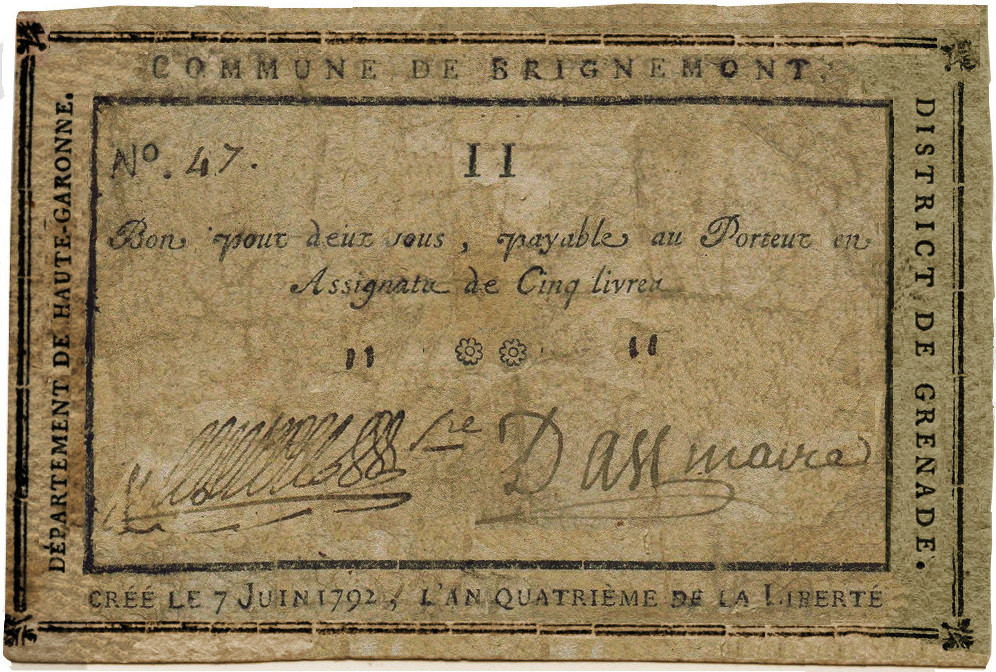 COMMUNE DE BRIGNEMONT.
DÉPARTEMENT DE HAUTE-GARONNE.
DISTRICT DE GRENADE.
Nº. 47.
II
Bon pour deux sous, payable au Porteur en
Assignats de Cinq livres
11
11
sre
Dass maire
CRÉÉ LE 7 JUIN 1792, L'AN QUATRIÈME DE LA LIBERTÉ